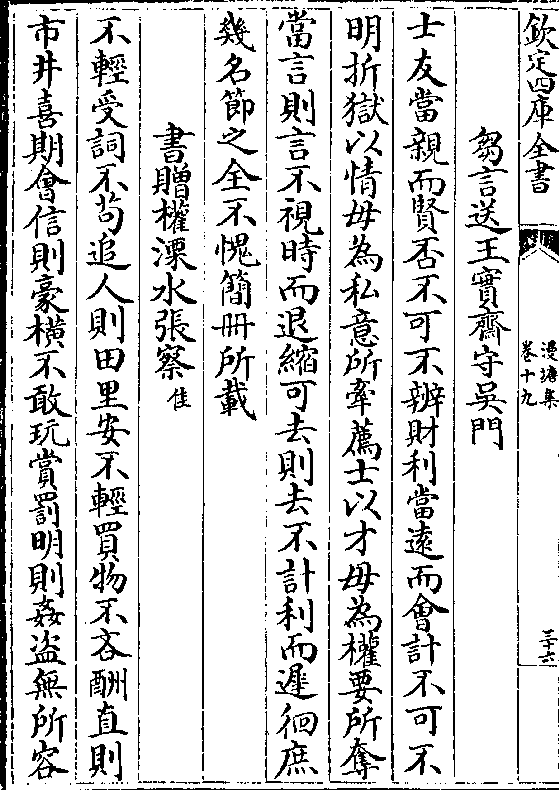 欽定四庫全書
漫塘集
卷十九
三十六
芻言送王實齋守吳門
士友當親而賢否不可不辨財利當遠而會計不可不
明折獄以情毋為私意所牽薦士以才毋為權要所奪
當言則言不視時而退縮可去則去不計利而遲徊庶
幾名節之全不愧簡冊所載
書贈權溧水張察隹
不輕受詞不苟追人則田里安不輕買物不吝酬直則
市井喜期會信則豪橫不敢玩賞罰明則姦盜無所容